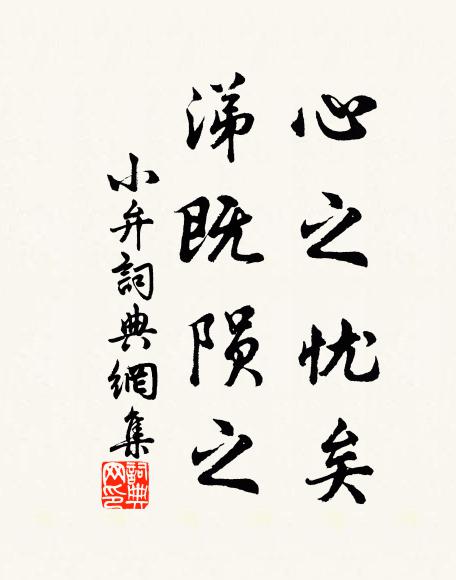 心之忧矣
涕既陨之
小弁詞典網集
詞典网印